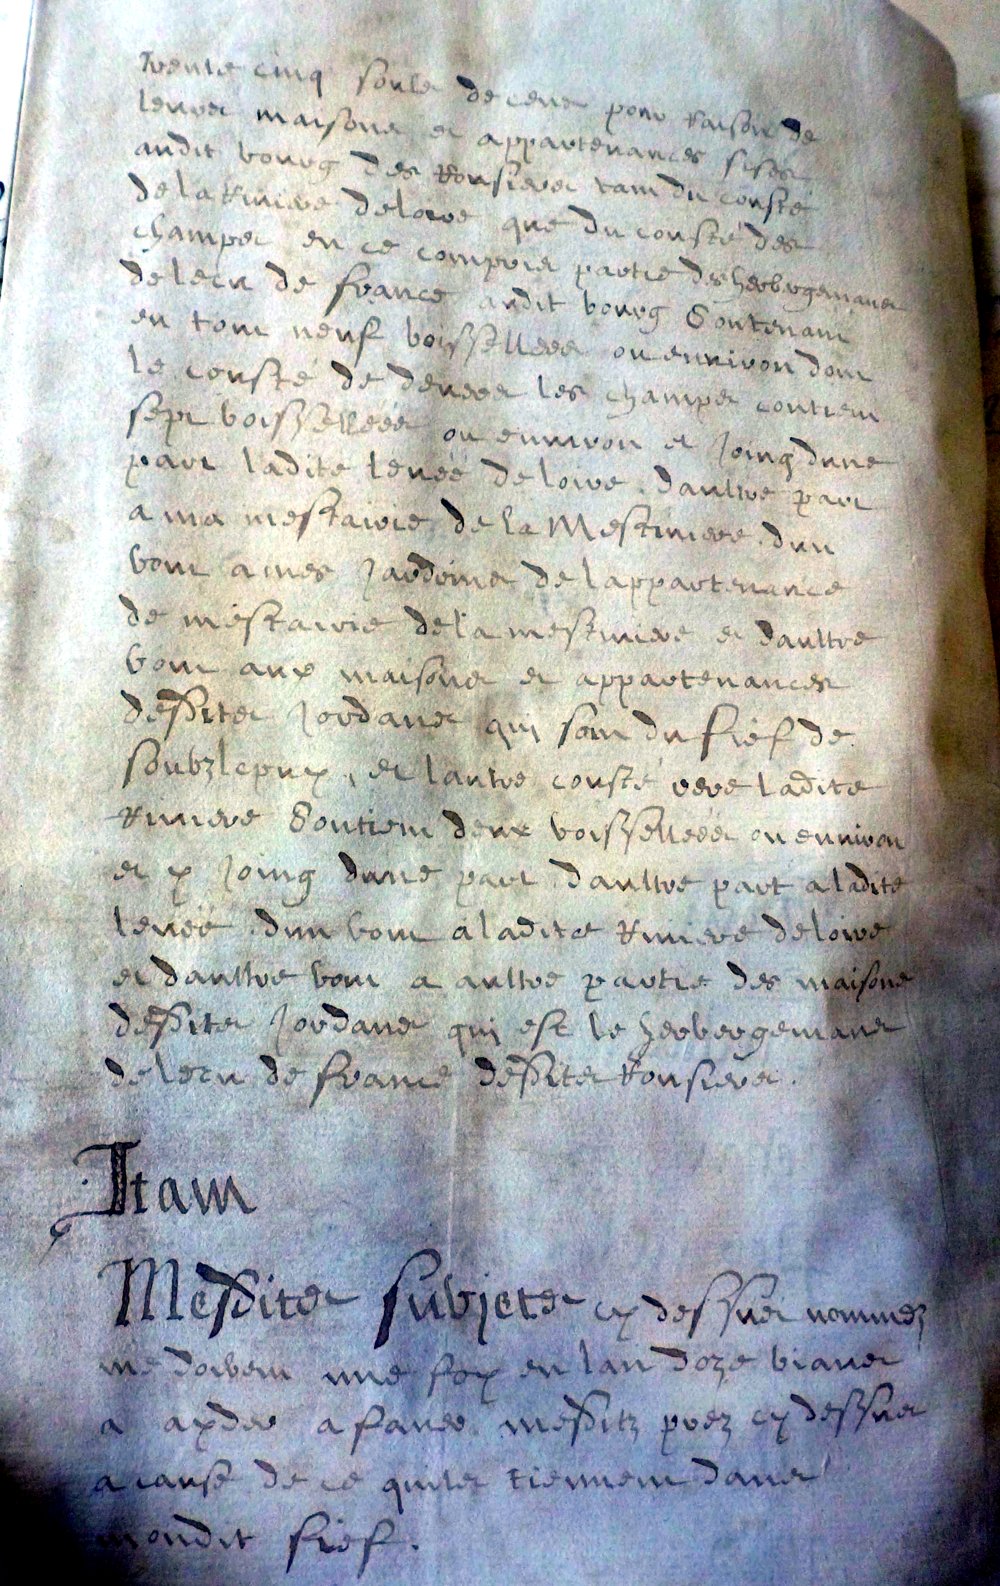 trente cinq soulz de cens pour raison de
leurs maisons et appartenances sises
audit bourg des Rousiers tant du cousté
de la Riviere de loire que du cousté des
champs en ce compris partie des herbergemans
de lecu de france audit bourg Contenant
en tout neuf boissellées ou environ dont
le cousté de devers les champs contient
sept boissellées ou environ et Joing dune
part ladite levéé de loire daultre part
a ma mestairie de la Mestiviere dun
bout a mes Jardrins de lappartenance
de mestairie de la mestiviere et daultre
bout aux maisons et appartenances
desdites Jordans qui sont du fief de
soubzlepuy, et lautre cousté vers ladite
Riviere Contient deux boissellées ou environ
et y Joing dune part daultre part a ladite
levéé dun bout a ladite Riviere de loire
et daultre bout a aultre partie des maisons
desdites Jordans qui est le herbergemans
de lecu de france desdites Rousiers.
Itam
Mesdites subjets cy dessus nommez
me doibvent une foy en lan doze bians
a ayder a faner mesditz prez cy dessus
a cause de ce quils tiennent dans
mondit fief.